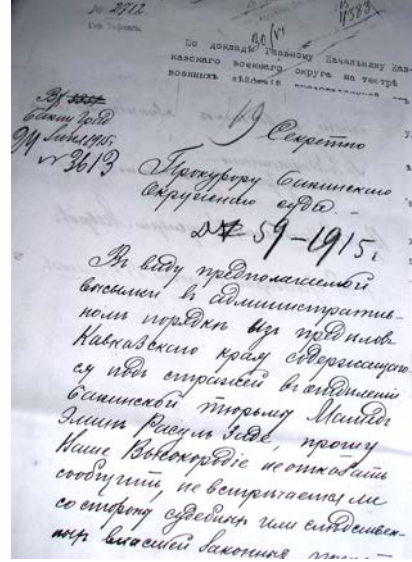 № 2712
4388
20/VI
Гор. Тифлисъ.
По докладѣ Главному Начальнику Кав-
казскаго военнаго округа на театрѣ
военныхъ дѣйствій
19
Секретно
24 1915г.
№ 3613
Прокурору Бакинскаго
Окружнаго суда.
59-1915г
Въ виду предполагаемой
высылки въ административ-
номъ порядкѣ изъ предѣловъ
Кавказскаго края содержащаго-
ся подъ стражей въ отдѣленіи
Бакинской тюрьмы Мамедъ
Эминъ Расулъ Заде, прошу
Ваше Высокородіе не отказать
сообщить, не встрѣчается ли
со стороны судебныхъ или слѣдствен-
ныхъ властей законныхъ